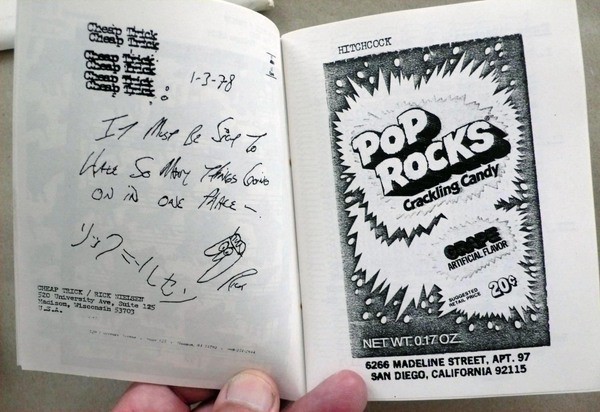 Cheap Trick
1-3-78
IT MUST BE SICK TO
HAVE SO MANY THINGS GOING
ON IN ONE PLACE —
リック ニールセン
Rick
CHEAP TRICK / RICK NIELSEN
520 University Ave, Suite 125
Madison, Wisconsin 53703
U.S.A.
HITCHCOCK
POP
ROCKS
Crackling Candy
GRAPE
ARTIFICIAL FLAVOR
SUGGESTED
RETAIL PRICE
20¢
NET WT. 0.17 OZ.
6266 MADELINE STREET, APT. 97
SAN DIEGO, CALIFORNIA 92115